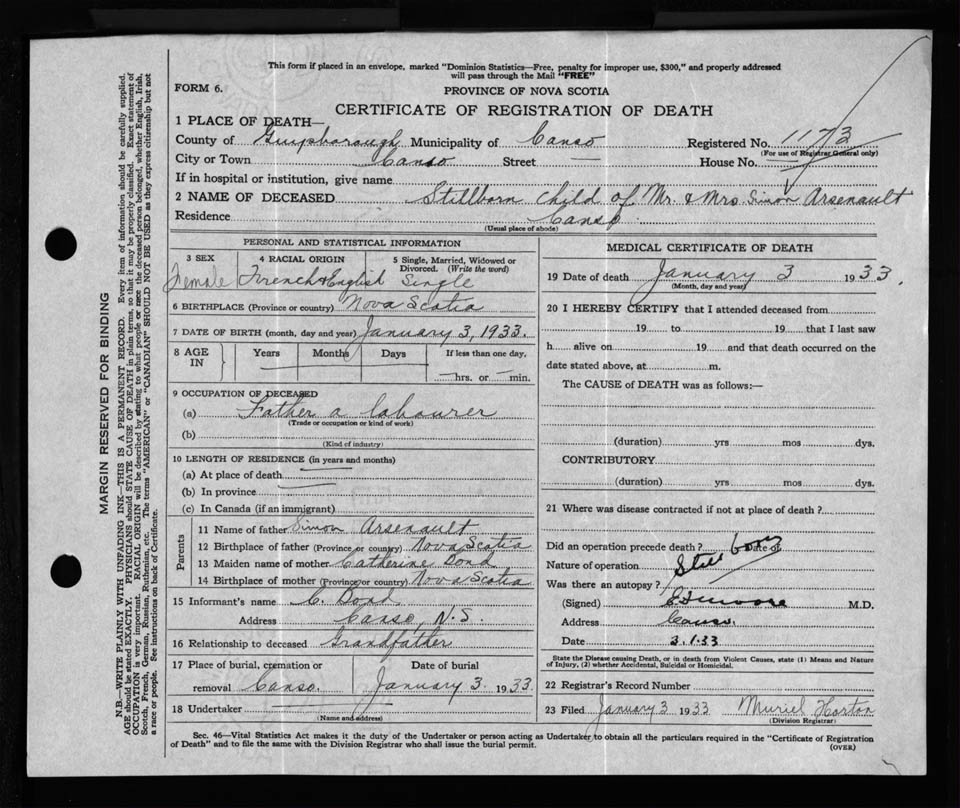 This form if placed in an envelope, marked "Dominion Statistics—Free, penalty for improper use, $300," and properly addressed
will pass through the Mail "FREE"
FORM 6.
PROVINCE OF NOVA SCOTIA
CERTIFICATE OF REGISTRATION OF DEATH
1 PLACE OF DEATH—
County of Guysborough Municipality of Canso Registered No. 1173
(For use of Registrar General only)
City or Town Canso Street — House No.
If in hospital or institution, give name
2 NAME OF DECEASED Stillborn child of Mr. & Mrs. Simon Arsenault
Residence Canso
(Usual place of abode)
PERSONAL AND STATISTICAL INFORMATION
3 SEX Female
4 RACIAL ORIGIN French & English
5 Single, Married, Widowed or Divorced. (Write the word) Single
6 BIRTHPLACE (Province or country) Nova Scotia
7 DATE OF BIRTH (month, day and year) January 3, 1933.
8 AGE IN Years Months Days If less than one day,
— hrs. or — min.
9 OCCUPATION OF DECEASED
(a) Father a labourer
(Trade or occupation or kind of work)
(b)
(Kind of industry)
10 LENGTH OF RESIDENCE (in years and months)
(a) At place of death
(b) In province
(c) In Canada (if an immigrant)
Parents
11 Name of father Simon Arsenault
12 Birthplace of father (Province or country) Nova Scotia
13 Maiden name of mother Catherine Dond
14 Birthplace of mother (Province or country) Nova Scotia
15 Informant's name C. Dond.
Address Canso, N.S.
16 Relationship to deceased Grandfather
17 Place of burial, cremation or removal Canso. Date of burial January 3. 1933.
18 Undertaker
(Name and address)
MEDICAL CERTIFICATE OF DEATH
19 Date of death January 3 1933.
(Month, day and year)
20 I HEREBY CERTIFY that I attended deceased from
19 to 19 that I last saw
h alive on 19 and that death occurred on the
date stated above, at m.
The CAUSE of DEATH was as follows:—
(duration) yrs mos dys.
CONTRIBUTORY
(duration) yrs mos dys.
21 Where was disease contracted if not at place of death?
Did an operation precede death? Date of
Still born
Nature of operation
Was there an autopsy?
(Signed) M.D.
Address Canso.
Date 3.1.33
State the Disease causing Death, or in death from Violent Causes, state (1) Means and Nature
of Injury, (2) whether Accidental, Suicidal or Homicidal.
22 Registrar's Record Number
23 Filed January 3 1933 Muriel Horton
(Division Registrar)
Sec. 46—Vital Statistics Act makes it the duty of the Undertaker or person acting as Undertaker to obtain all the particulars required in the "Certificate of Registration
of Death" and to file the same with the Division Registrar who shall issue the burial permit.
(OVER)
MARGIN RESERVED FOR BINDING
N.B.—WRITE PLAINLY WITH UNFADING INK—THIS IS A PERMANENT RECORD. Every item of information should be carefully supplied.
AGE should be stated EXACTLY. PHYSICIANS should STATE CAUSE OF DEATH in plain terms, so that it may be properly classified. Exact statement of
OCCUPATION is very important. RACIAL ORIGIN will be described by stating to what people or race the deceased person belonged, whether English, Irish,
Scotch, French, German, Russian, Ruthenian, etc. The terms "AMERICAN" or "CANADIAN" SHOULD NOT BE USED as they express citizenship but not
a race or people. See instructions on back of Certificate.